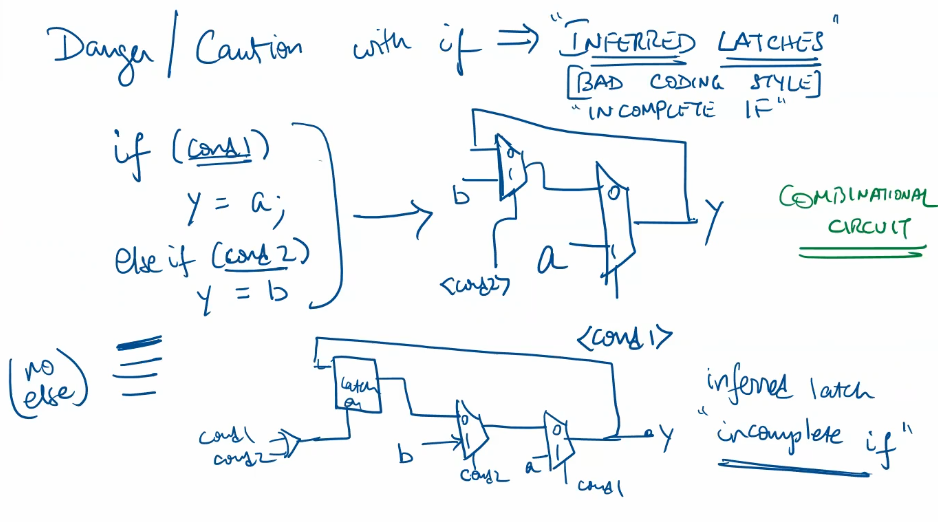 Danger / Caution with if ⇒ "INFERRED LATCHES"
[BAD CODING STYLE]
"INCOMPLETE IF"
if (cond1)
y = a;
else if (cond2)
y = b
0
1
b
<cond2>
0
1
a
<cond1>
Y
COMBINATIONAL
CIRCUIT
(no
else)
latch
en
cond1
cond2
b
0
1
cond2
a
0
1
cond1
Y
inferred latch
"incomplete if"